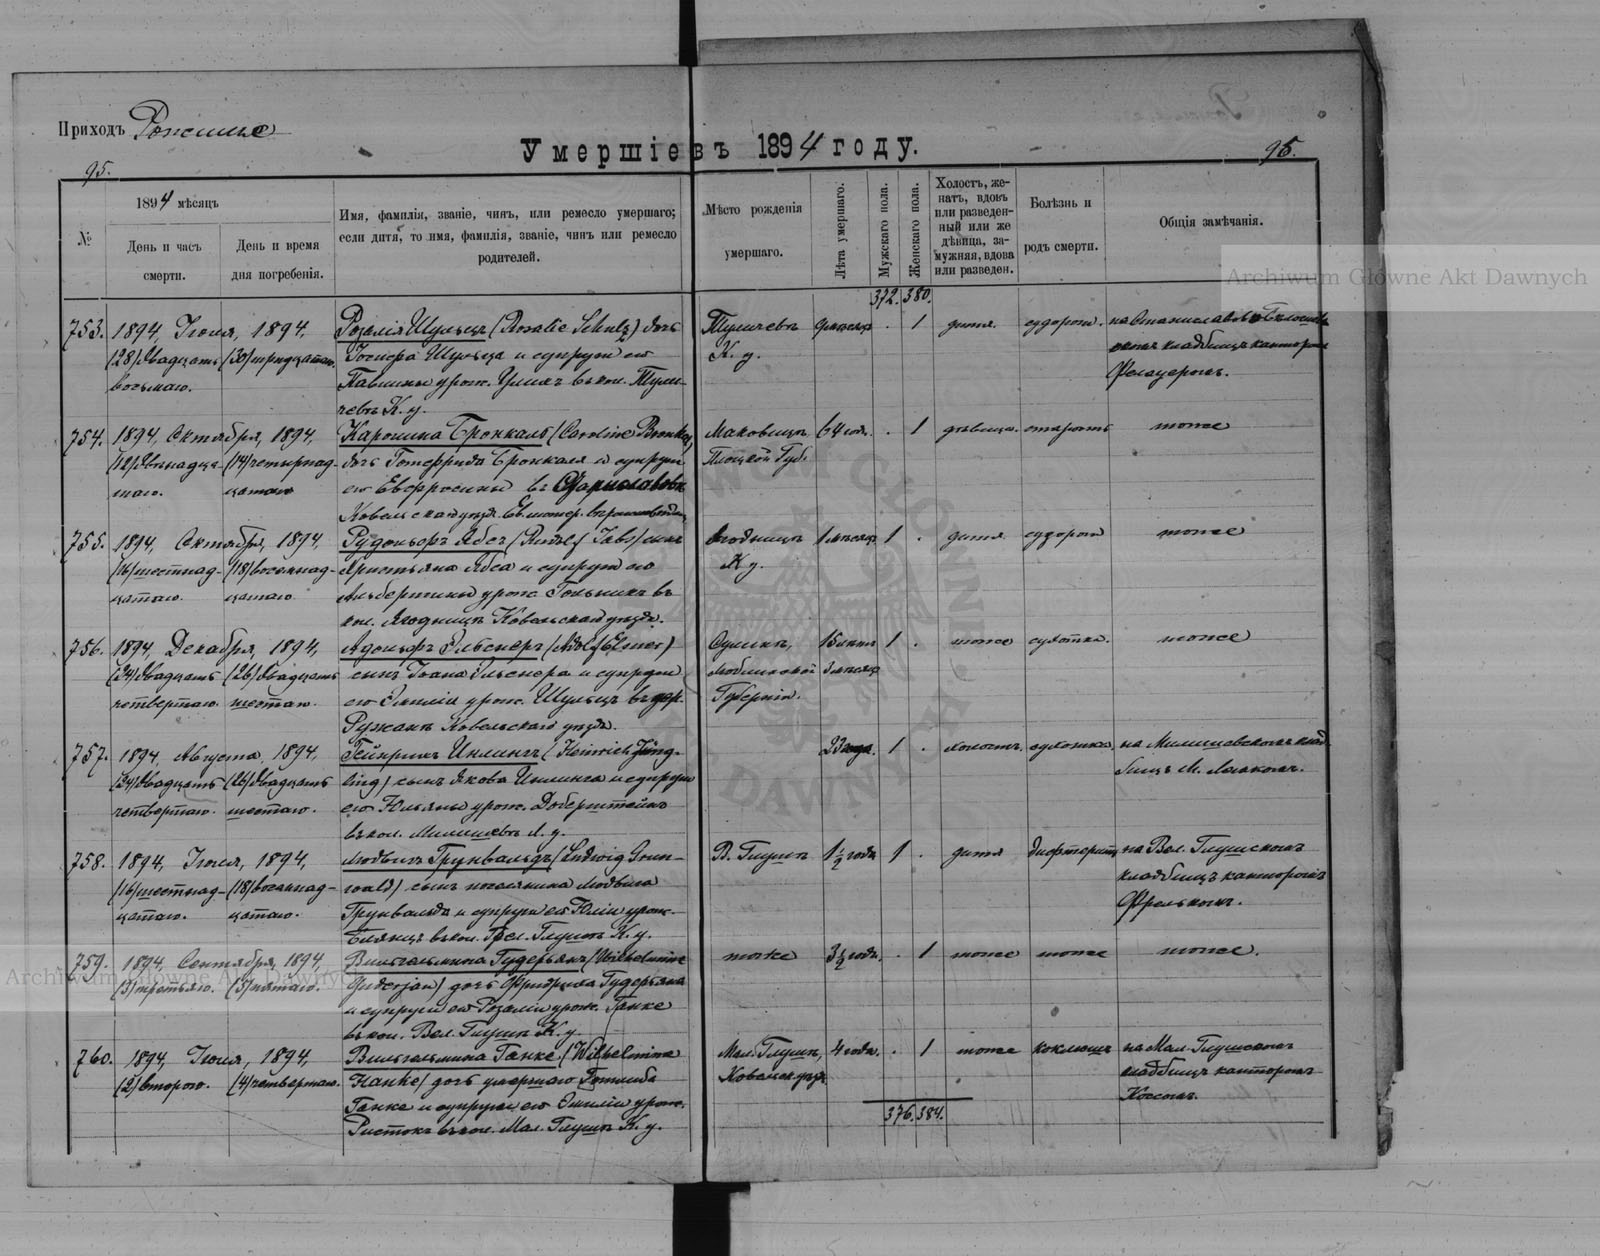 Приходъ Рожище
Умершіе въ 1894 году.
95.
95.
№
1894 мѣсяцъ
День и часъ смерти.
День и время дня погребенія.
Имя, фамилія, званіе, чинъ, или ремесло умершаго;
если дитя, то имя, фамилія, званіе, чинъ или ремесло
родителей.
Мѣсто рожденія
умершаго.
Лѣта умершаго.
Мужскаго пола.
Женскаго пола.
Холостъ, же-
натъ, вдовъ
или разведен-
ный или же
дѣвица, за-
мужняя, вдова
или разведен.
Болѣзнь и
родъ смерти.
Общія замѣчанія.
Archiwum Główne Akt Dawnych
372. 380.
753. 1894, Іюля, 1894,
(28) двадцать восьмаго.
(30) тридцатаго.
Розалія Шульцъ (Rosalie Schulz) дочь
Шульца и супруги его
Павлины урож. въ кол. Тули-
чевъ К. у.
Туличевъ К. у.
1 дитя. судорож.
кладбищѣ канторомъ
754. 1894, Октября, 1894,
(12) двѣнадца-
таго.
(14) четырнад-
цатаго
Каролина Бронкаль (Caroline Bronkal)
дочь Готфрида Бронкаля и супруги
его Евфросины въ
Ковельскаго уѣзда.
Плоцкой Губ.
64 год. . 1 дѣвица. старость тоже
755. 1894, Октября, 1894,
(16) шестнад-
цатаго.
(18) восемнад-
цатаго
Рудольфъ Ябсъ (Rudolf Jabs) сынъ
Христьяна Ябса и супруги его
Альбертины урож.
кол. Ягодницъ Ковельскаго уѣзда.
Ягодницъ К у.
1 мѣсяцъ 1 . дитя судорож тоже
756. 1894, Декабря, 1894,
(24) двадцать
четвертаго.
(26) двадцать
шестаго.
Адольфъ Эльснеръ (Adolf Elsner)
сынъ Іоана Эльснера и супруги
его Эмиліи урож. Шульцъ въ дер.
Ружанъ Ковельскаго уѣзда.
Люблинской
Губерніи.
15 лѣтъ
3 мѣсяц
1 . тоже сухотка. тоже
757. 1894, Августа, 1894,
(24) двадцать
четвертаго.
(26) двадцать
шестаго.
Гейнрихъ Инлингъ (Heinrich Jüng-
ling) сынъ Якова Инлинга и супруги
его Юльяны урож. Доберштейнъ
въ кол.
23 года. 1 . холостъ. сухотка.
758. 1894, Іюля, 1894,
(16) шестнад-
цатаго.
(18) восемнад-
цатаго.
Людвигъ Грунвальдъ (Ludwig Grun-
wald) сынъ поселянина Людвига
Грунвальда и супруги его Юліи урож.
въ кол. Вел. Глушъ К. у.
В. Глушъ 1½ года 1 . дитя дифтеритъ на Вел. Глушскомъ
кладбищѣ канторомъ
759. 1894, Сентября, 1894,
(3) третьяго. (5) пятаго.
Вильгельмина Гудерьянъ (Wilhelmine
Guderjan) дочь Фридриха Гудерьяна
и супруги его Розаліи урож. Ганке
въ кол. Вел. Глушъ К. у.
тоже 3½ года. . 1 тоже тоже тоже.
760. 1894, Іюля, 1894,
(2) второго. (4) четвертаго.
Вильгельмина Ганке (Wilhelmina
Hanke) дочь умершаго Готлиба
Ганке и супруги его Эмиліи урож.
въ кол. Мал. Глушъ К. у.
Мал. Глушъ,
Ковельск. уѣзд
4 года. . 1 тоже коклюшъ на Мал. Глушскомъ
кладбищѣ канторомъ
376. 384.
Archiwum Główne Akt Dawnych